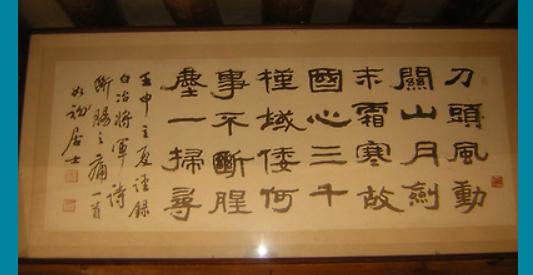 刀頭風動
關山月劍
末霜寒故
國心三千
槿域倭何
事不斷腥
塵一掃尋
壬申之夏謹錄
白冶將軍詩
斷腸之痛一首
如初居士